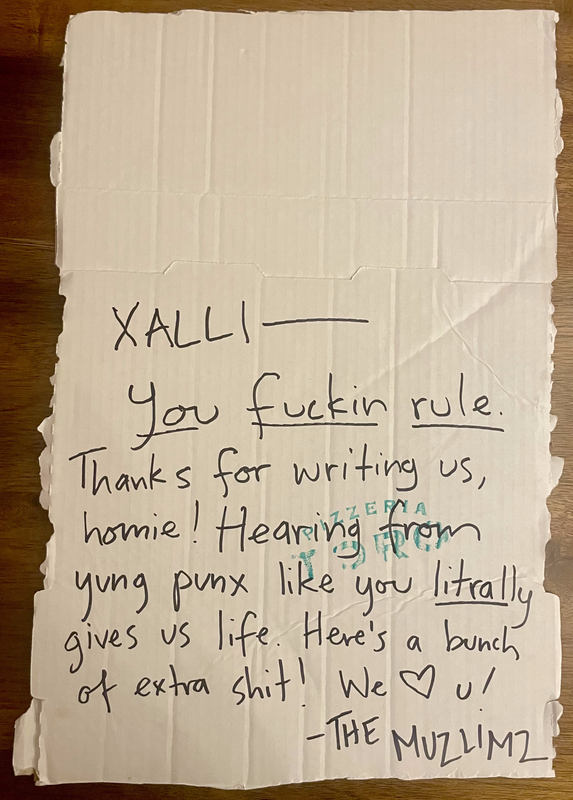 XALLI —
You fuckin rule.
Thanks for writing us,
homie! Hearing from
PIZZERIA
yung punx like you litrally
gives us life. Here's a bunch
of extra shit! We ♡ u!
-THE MUZLIMZ